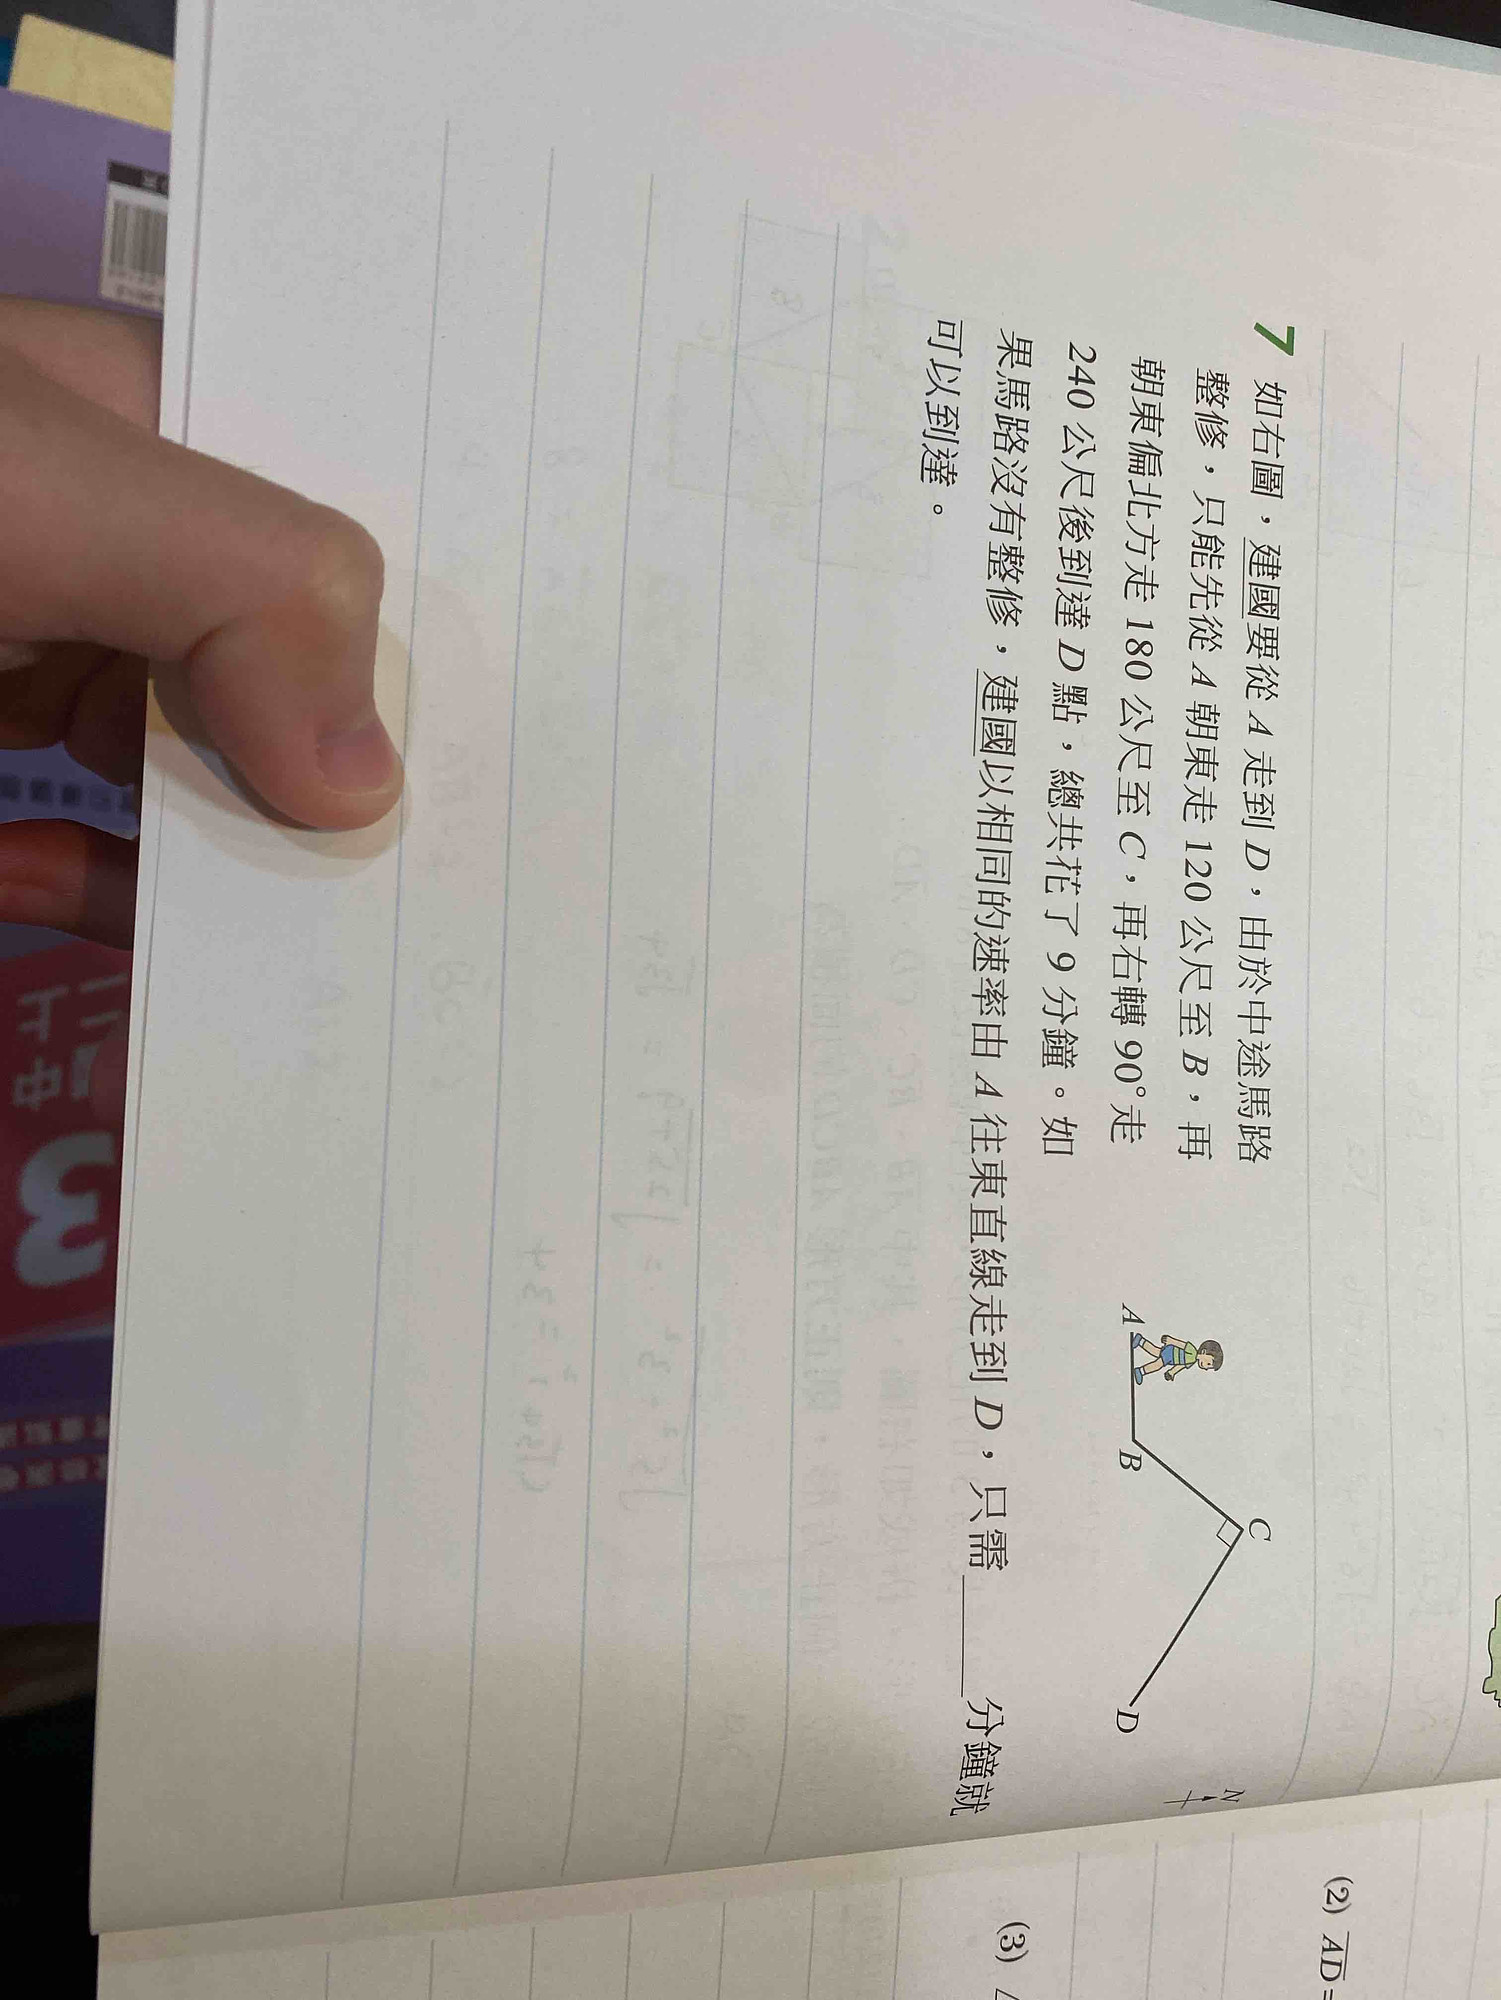 7 如右圖，建國要從 A 走到 D，由於中途馬路
整修，只能先從 A 朝東走 120 公尺至 B，再
朝東偏北方走 180 公尺至 C，再右轉 90°走
240 公尺後到達 D 點，總共花了 9 分鐘。如
果馬路沒有整修，建國以相同的速率由 A 往東直線走到 D，只需______分鐘就
可以到達。
A
B
C
D
N
(2) AD=
(3)
3